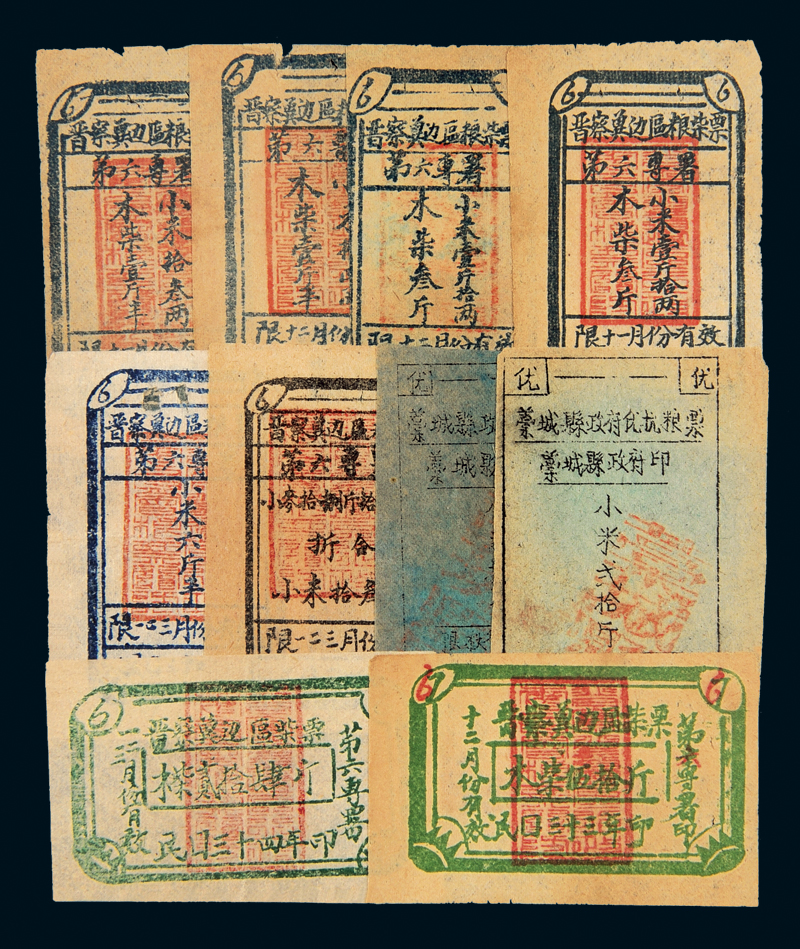 6
晋察冀边區粮
第六專署
小米拾叁两
木柴壹斤半
6
晋察冀边區粮
第六專
木柴壹斤半
限十二月份
6
晋察冀边區粮柴票
第六專署
小米壹斤拾两
木柴叁斤
限十二月份有效
6 6
晋察冀边區粮柴票
第六專署
小米壹斤拾两
木柴叁斤
限十一月份有效
6
晋察冀边區
第六專
小米六斤半
限一二三月份
6
晋察冀边區
第六專
小麥拾捌斤
折合
小米拾叁
限一二三月份
优
藁城縣政
藁城縣
优 优
藁城縣政府优抗粮票
藁城縣政府印
小米弍拾斤
6
晋察冀边區柴票
第六專署
一二三月份有效
木柴贰拾肆斤
民囯三十四年印
6 6
晋察冀边區柴票
第六專署印
十二月份有效
木柴伍拾斤
民囯三十三年印